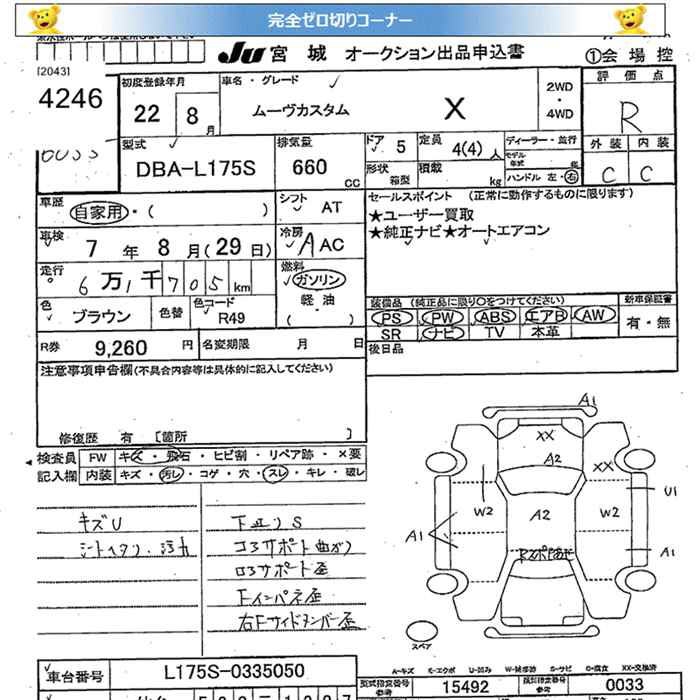 完全ゼロ切りコーナー
JU 宮 城 オークション出品申込書 ①会 場 控
[2043]
4246
初度登録年月 22 8 月
車名・グレード ムーヴカスタム X
2WD
・
4WD
評 価 点
R
型式 DBA-L175S
排気量 660 cc
ドア 5
定員 4(4) 人
形状 箱型
積載 kg
ディーラー・並行
モデル年式
ハンドル 左・右
外 装 内 装
C C
車歴 自家用・( )
シフト AT
セールスポイント (正常に動作するものに限ります)
★ユーザー買取
★純正ナビ★オートエアコン
車検 7 年 8 月(29 日)
冷房 A AC
走行 6 万 1 千 705 km
燃料 ガソリン
軽・油
( )
色 ブラウン 色替 色コード R49
装備品 (純正品に限り〇をつけてください) 新車保証書
PS PW ABS エアB AW 有・無
SR ナビ TV 本革
R券 9,260 円 名変期限 月 日
後日品
注意事項申告欄(不具合内容等は具体的に記入してください)
修復歴 有 [箇所 ]
検査員 FW キズ・飛石・ヒビ割・リペア跡・×要
記入欄 内装 キズ・汚レ・コゲ・穴・スレ・キレ・破レ
キズU
シートヘタリ・汚れ
下廻りS
コアサポート曲がり
ロアサポート歪
Fインパネ歪
右Fサイドメンバー歪
A1
XX
A2
XX
W2
A2
W2
U1
A1
A1
スペア
A-キズ E-エクボ U-凹み W-補修跡 S-サビ C-腐食 XX-交換済
車台番号 L175S-0335050
型式指定番号 参考 15492
類別指定番号 参考 0033